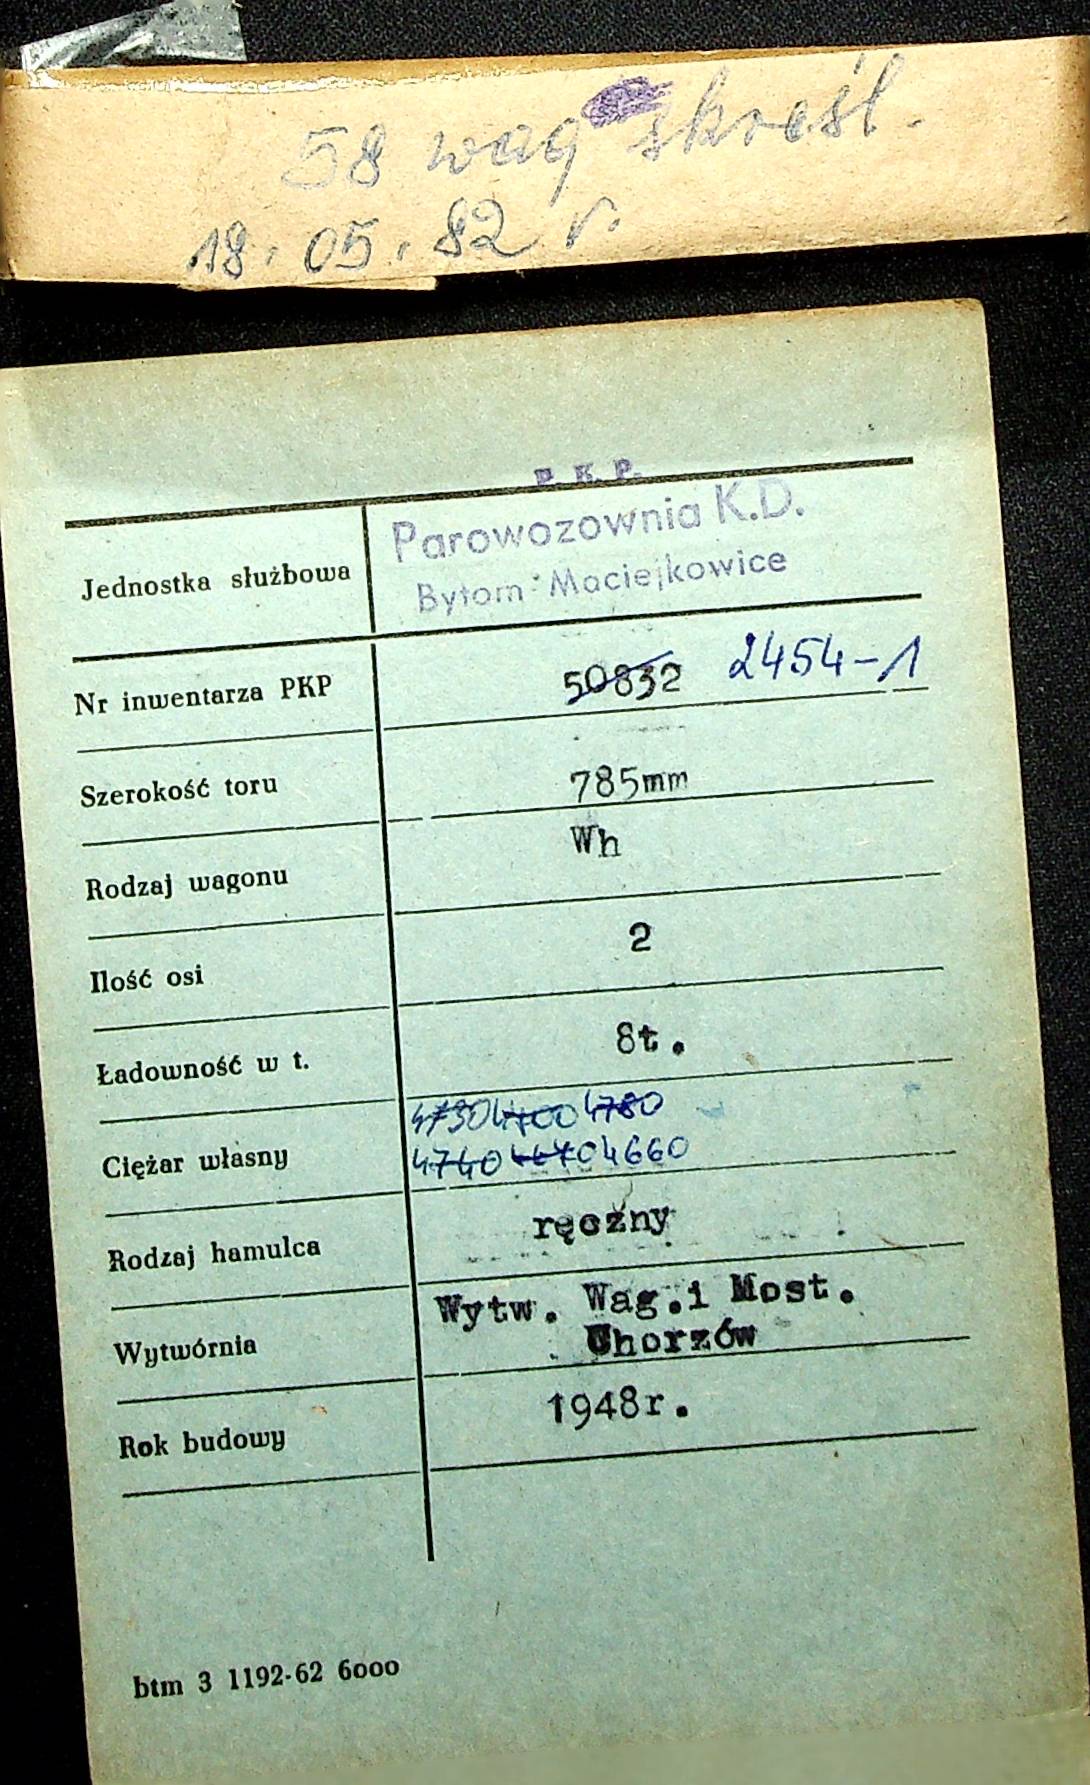 58 wag skreśl.
18.05.82 r.
P. K. P.
Jednostka służbowa Parowozownia K.D.
Bytom-Maciejkowice
Nr inwentarza PKP 50832 2454-1
Szerokość toru 785mm
Rodzaj wagonu Wh
Ilość osi 2
Ładowność w t. 8t.
4730 4700 4780
Ciężar własny 4740 4660
Rodzaj hamulca ręczny
Wytwórnia Wytw. Wag.i Most.
Chorzów
Rok budowy 1948r.
btm 3 1192-62 6000